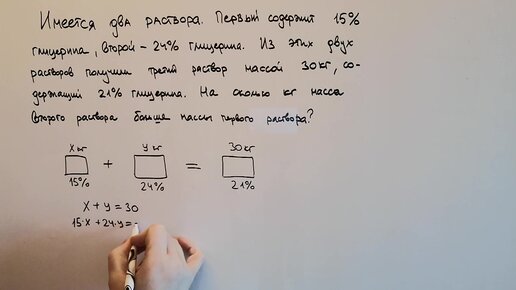 Имеется два раствора. Первый содержит 15%
глицерина, второй – 24% глицерина. Из этих двух
растворов получили третий раствор массой 30кг, со-
держащий 21% глицерина. На сколько кг масса
второго раствора больше массы первого раствора?
x кг y кг 30кг
+ =
15% 24% 21%
x + y = 30
15·x + 24·y =